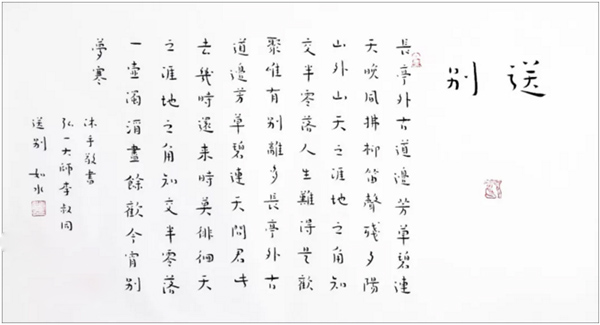 送别
長亭外古道邊芳草碧連
天晚風拂柳笛聲殘夕陽
山外山天之涯地之角知
交半零落人生難得是歡
聚唯有别離多長亭外古
道邊芳草碧連天問君此
去幾時還來時莫徘徊天
之涯地之角知交半零落
一壺濁酒盡餘歡今宵别
夢寒
沐手敬書
弘一大師李叔同
送别 如水